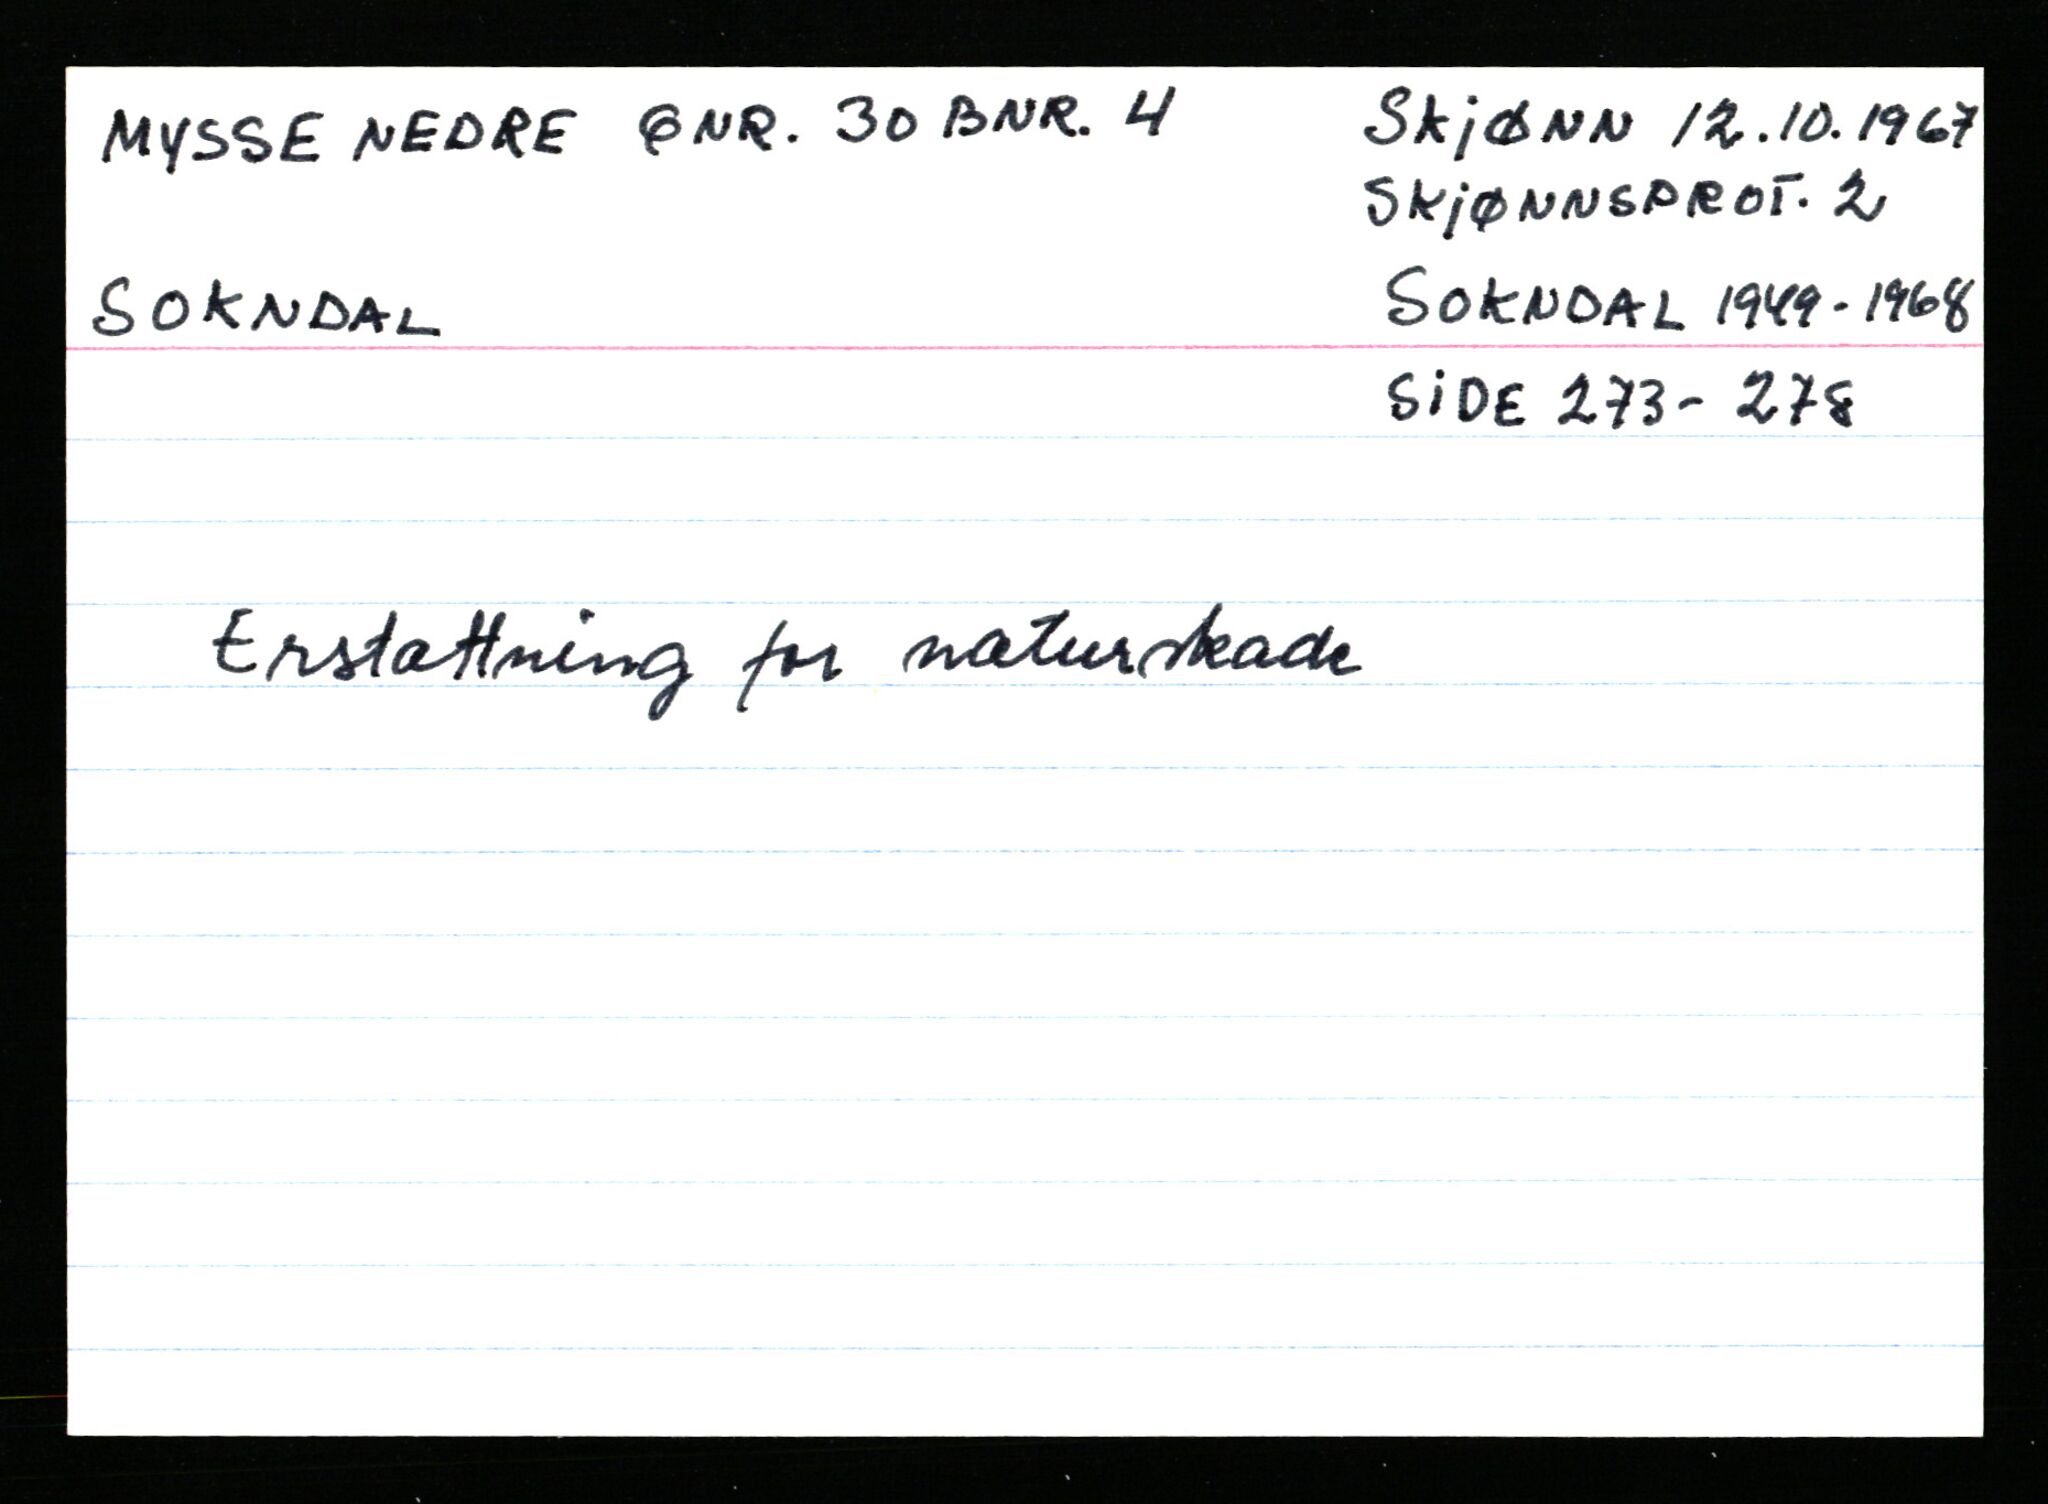 MYSSE NEDRE GNR. 30 BNR. 4
SKjØNN 12.10.1967
SKjØNNSPROT. 2
SOKNDAL
SOKNDAL 1949-1968
SiDE 273-278
Erstattning for naturskade